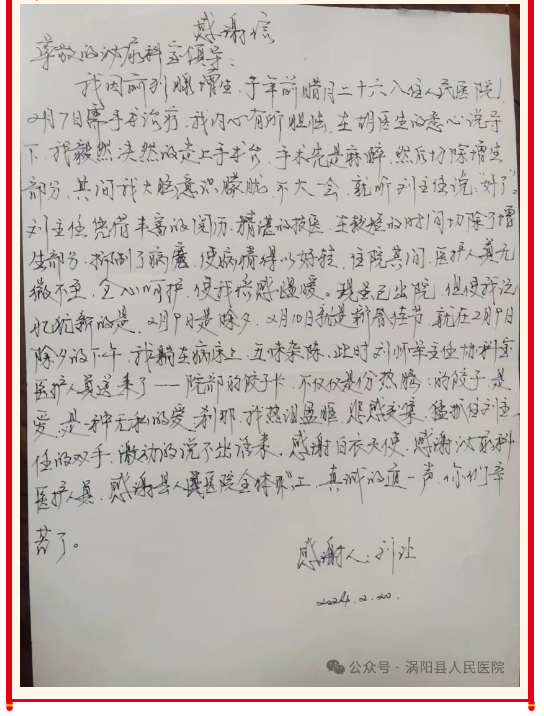 感谢信
尊敬的泌尿科室领导：
我因前列腺增生，于年前腊月二十六入住人民医院，
2月7日需手术治疗，我内心有所胆怯，在胡医生的悉心说导
下，我毅然决然的走上手术台，手术先是麻醉，然后切除增生
部分，其间我大脑意识朦胧，不大会，就听刘主任说“好了”。
刘主任凭借丰富的阅历，精湛的技医，在较短的时间切除了增
生部分，抑制了病魔，使病情得以好转，住院其间，医护人员无
微不至，全心呵护，使我倍感温暖。现虽已出院，但使我记
忆犹新的是，2月9日是除夕，2月10日就是新春佳节，就在2月9日
除夕的下午，我躺在病床上，五味杂陈，此时刘师学主任协科室
医护人员送来了——院部的饺子卡，不仅仅是份热腾的饺子，是
爱，是一种无私的爱，刹那，我热泪盈眶，悲感交集，猛抓住刘主
任的双手，激动的说不出话来，感谢白衣天使，感谢泌尿科
医护人员，感谢县人民医院全体职工，真诚的道一声，你们辛
苦了。
感谢人：刘
2024.2.20.
公众号·涡阳县人民医院